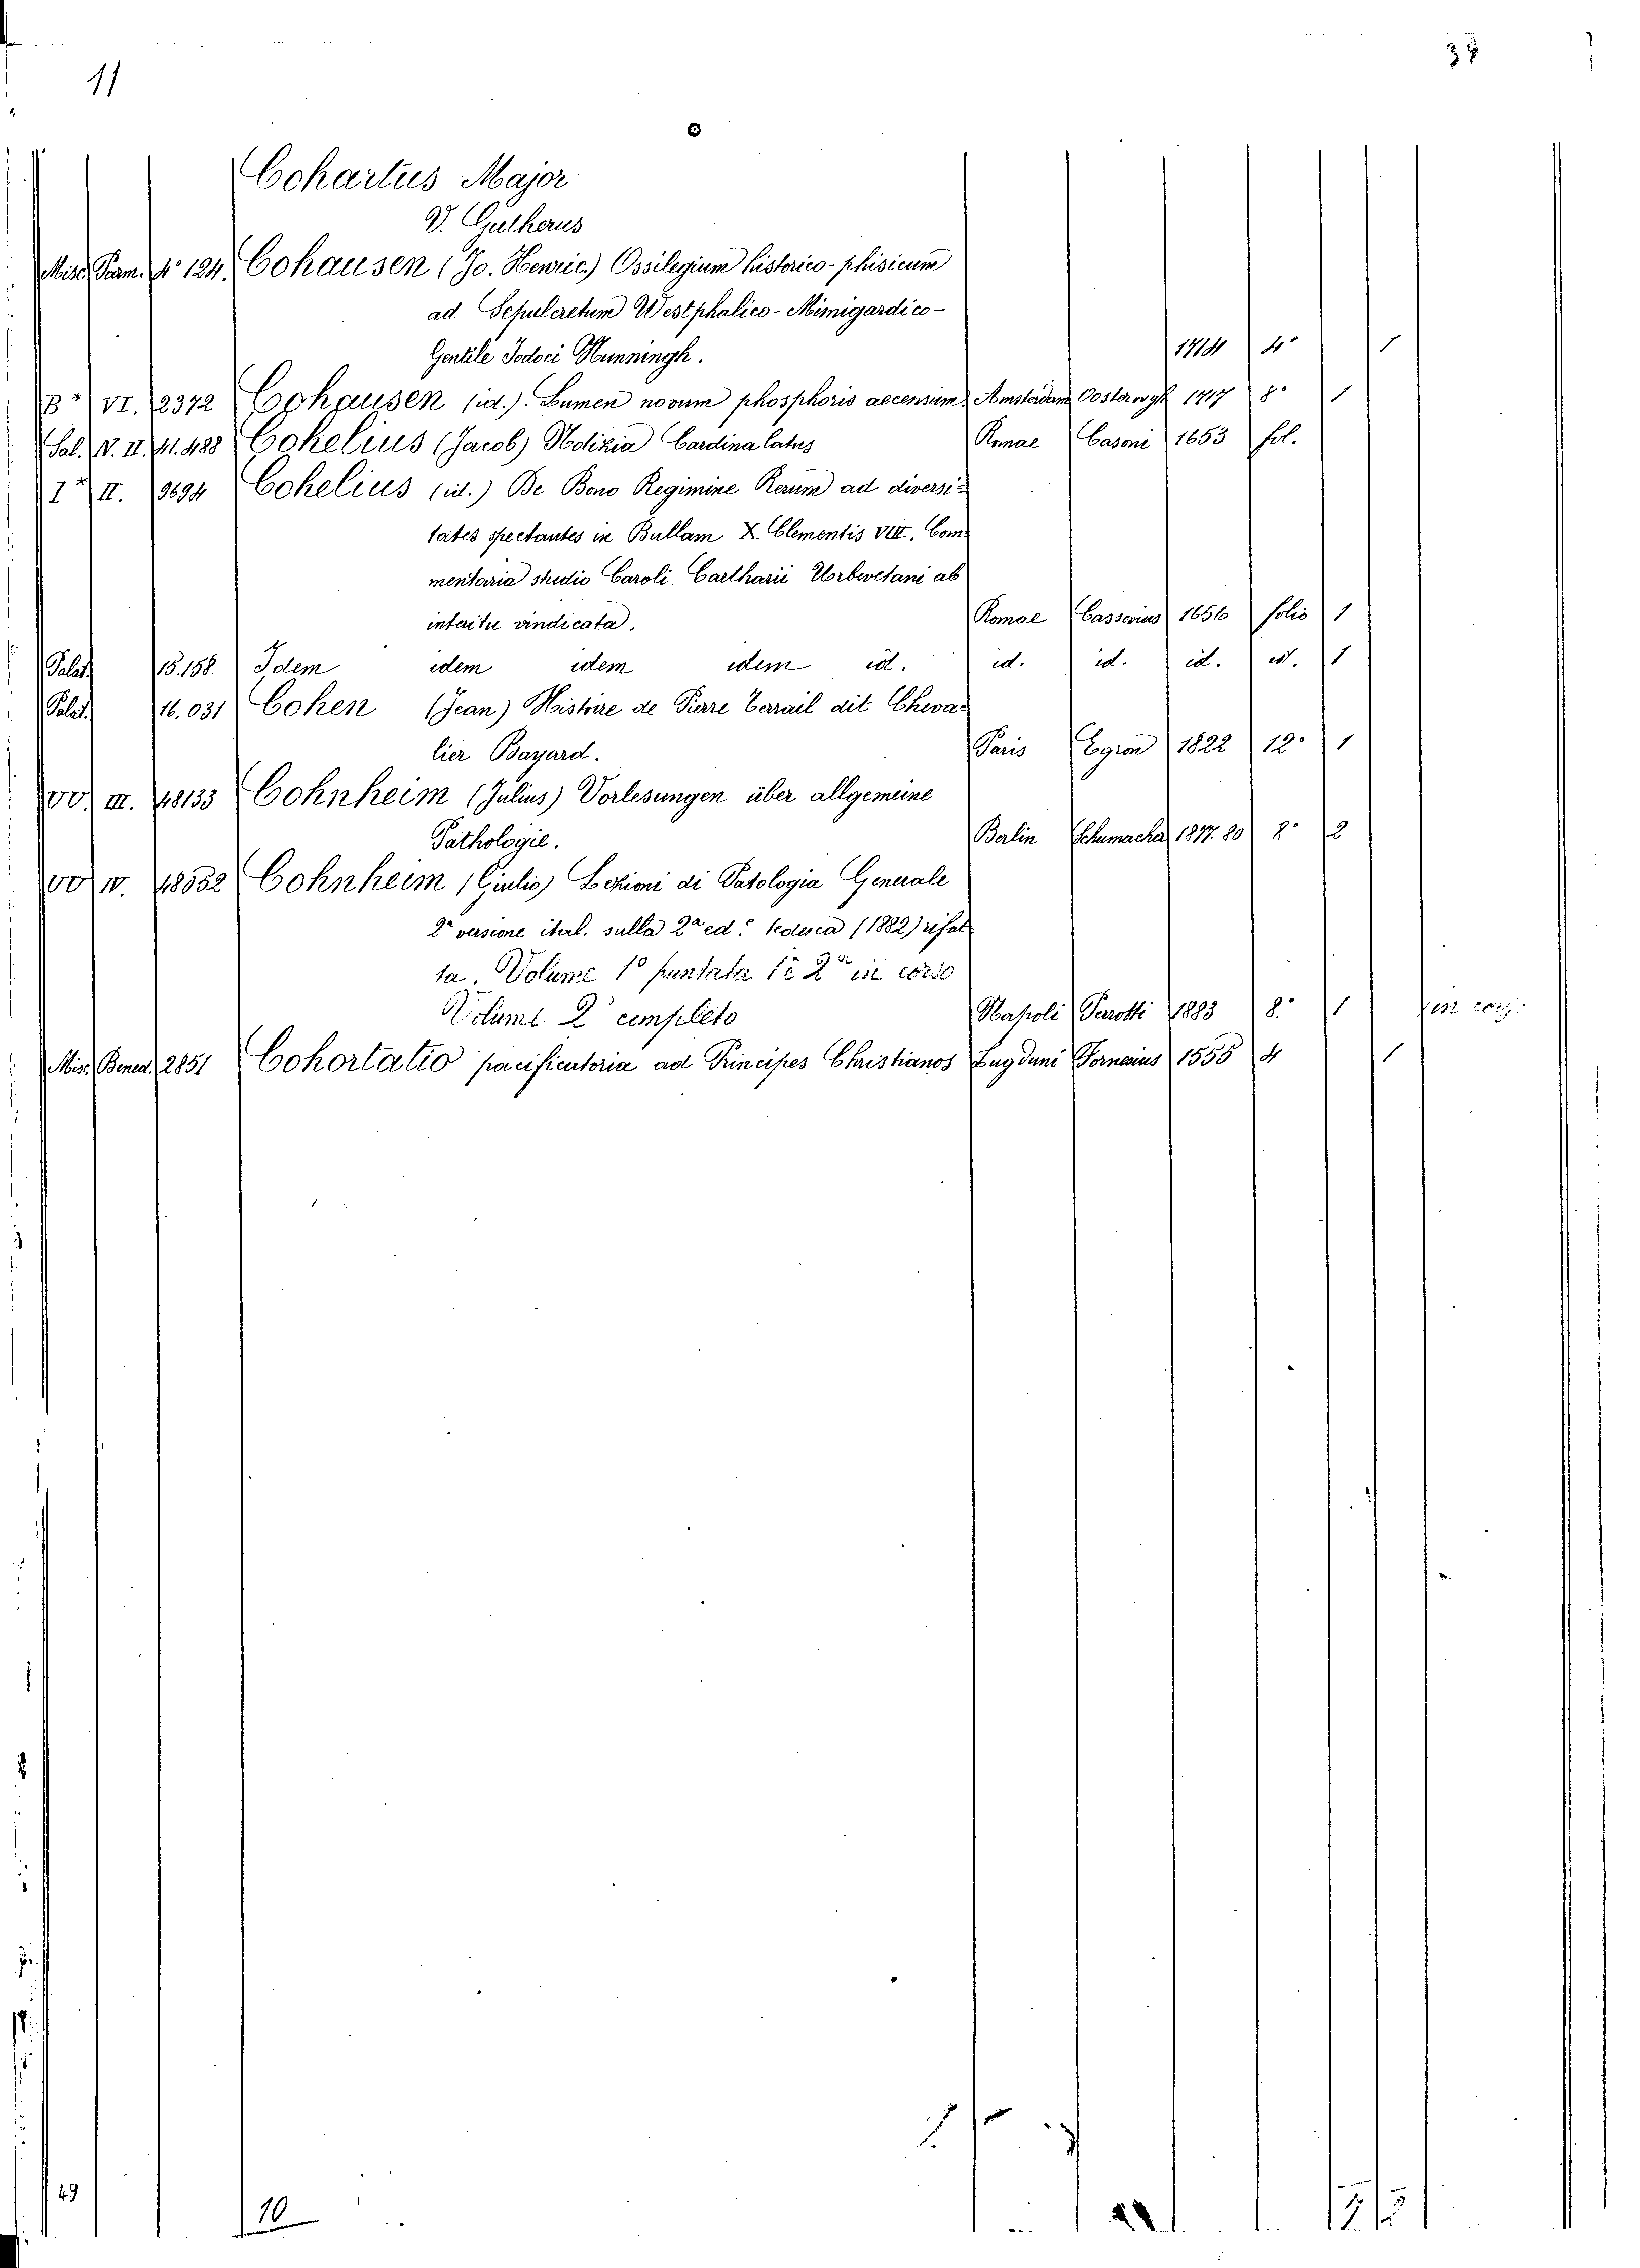 11
Cohartus Major
V. Gutherus
Misc. Parm. 4° 124. Cohausen (Jo. Henric.) Ossilegium historico-phisicum
ad Sepulcretum Westphalico-Mimigardico-
Gentile Jodoci Hunningh. 1714 4° 1
B VI. 12372 Cohausen (id.). Lumen novum phosphoris accensum. Amstaedam Oosterwyk 1717 8° 1
Pal. V. II. 11.488 Cohelius (Jacob) Notizia Cardinalatus Romae Casoni 1653 fol.
I II. 9694 Cohelius (id.) De Bono Regimine Rerum ad diversi-
tates spectantes in Bullam X Clementis VIII. Com-
mentaria studio Caroli Cartharii Urbevetani ab
interitu vindicata. Romae Casserius 1656 folio 1
Palat. 15.158 Idem idem idem idem id. id. id. id. id. 1
Palat. 16.031 Cohen (Jean) Histoire de Pierre Terrail dit Cheva-
lier Bayard. Paris Egron 1822 12° 1
VV. III. 48133 Cohnheim (Julius) Vorlesungen über allgemeine
Pathologie. Berlin Schumacher 1877.80 8° 2
VV IV. 48552 Cohnheim (Giulio) Lezioni di Patologia Generale
2ª versione ital. sulla 2ª ed. tedesca (1882) rifat-
ta. Volume 1° puntata 1ª 2ª in corso
Volume 2° completo Napoli Parotti 1883 8° 1
Misc. Bened. 2851 Cohortatio pacificatoria ad Principes Christianos Lugduni Fornerius 1555 4 1
49
10